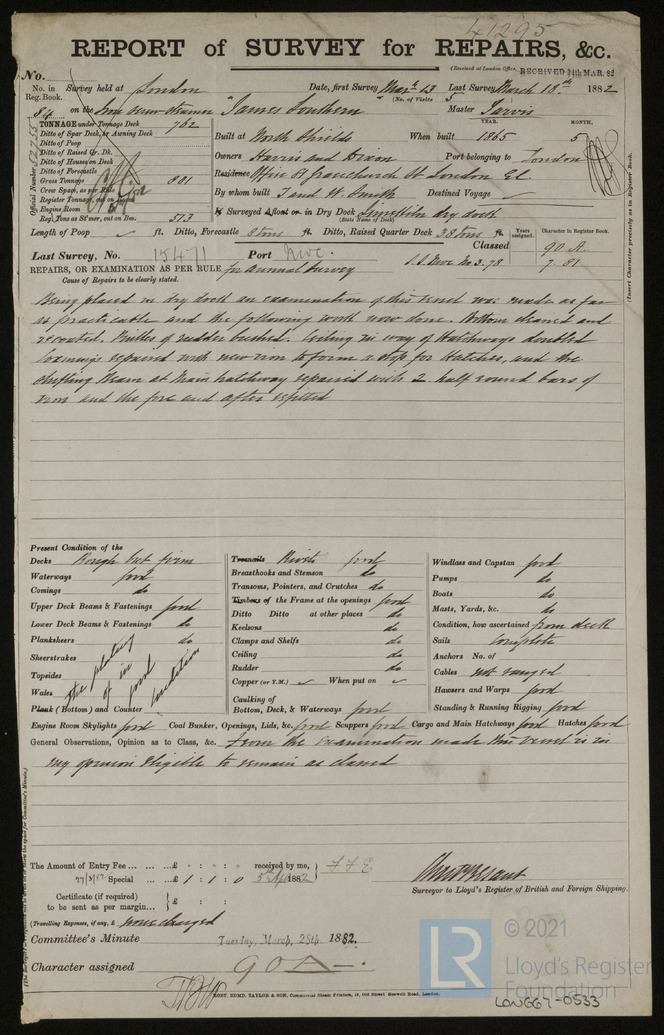 41295
REPORT of SURVEY for REPAIRS, &c.
(Received at London Office, RECEIVED 24th MAR. 82
No.
No. in Reg. Book. Survey held at London Date, first Survey Mar 13 Last Survey March 18th 1882
(No. of Visits 5
84 on the Iron Screw Steamer "James Southern" Master Jarvis
TONNAGE under Tonnage Deck 762
Ditto of Spar Deck, or Awning Deck
Ditto of Poop
Ditto of Raised Qr. Dk.
Ditto of Houses on Deck
Ditto of Forecastle
Gross Tonnage 801
Crew Space, as per Rule
Register Tonnage, cut on Beam
Engine Room
Reg. Tons as St'mer, cut on Bm. 513
Official Number
YEAR. MONTH.
Built at North Shields When built 1865 5
Owners Harris and Dixon Port belonging to London
Residence Office 81 Gracechurch St London EC
By whom built T and W. Smith Destined Voyage
If Surveyed Afloat or in Dry Dock Limekiln dry dock
(State Name of Dock)
Length of Poop ft. Ditto, Forecastle 8 tons ft. Ditto, Raised Quarter Deck 38 tons ft.
Years assigned. Character in Register Book.
(Insert Character precisely as in Register Book.
Last Survey, No. 15471 Port Nwc. Classed 90 A
REPAIRS, OR EXAMINATION AS PER RULE for annual Survey S.S. Nwc No 3-78 7.81
Cause of Repairs to be clearly stated.
Being placed in dry dock an examination of this vessel was made as far
as practicable and the following work now done. Bottom cleaned and
recoated. Pintles of rudder bushed. Ceiling in way of Hatchways doubled
Coamings repaired with new iron to form a stop for Hatches, and the
shifting beam at Main hatchway repaired with 2 half round bars of
iron and the fore and after refitted
Present Condition of the
Decks Rough but firm
Waterways good
Comings do
Upper Deck Beams & Fastenings good
Lower Deck Beams & Fastenings do
Planksheers do
Sheerstrakes
Topsides
Wales
Plank (Bottom) and Counter
The plating is in good condition
Treenails Rivets good
Breasthooks and Stemson do
Transoms, Pointers, and Crutches do
Timbers of the Frame at the openings good
Ditto Ditto at other places do
Keelsons do
Clamps and Shelfs do
Ceiling do
Rudder do
Copper (or Y.M.) When put on
Caulking of
Bottom, Deck, & Waterways good
Windlass and Capstan good
Pumps do
Boats do
Masts, Yards, &c. do
Condition, how ascertained from deck
Sails Complete
Anchors No. of
Cables not ranged
Hawsers and Warps good
Standing & Running Rigging good
Engine Room Skylights good Coal Bunker, Openings, Lids, &c. good Scuppers good Cargo and Main Hatchways good Hatches good
General Observations, Opinion as to Class, &c. From the Examination made this vessel is in
my opinion eligible to remain as classed
The Amount of Entry Fee ... ... ... £ : : received by me,
27/3/82 Special ... £ 1 : 1 : 0 5th Apl 1882
Certificate (if required)
to be sent as per margin... } £ : :
(Travelling Expenses, if any, £ none charged
Surveyor to Lloyd's Register of British and Foreign Shipping.
Committee's Minute Tuesday, March, 28th 1882.
Character assigned 90 A
ROBT. EDMD. TAYLOR & SON, Commercial Steam Printers, 19, Old Street Goswell Road, London.
LR
© 2021
Lloyd's Register
Foundation
LON667-0533